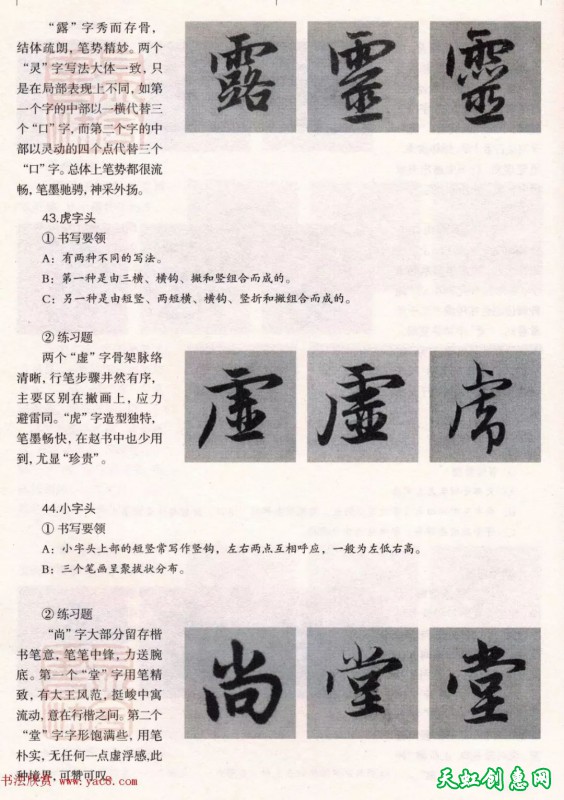 “露”字秀而存骨，
结体疏朗，笔势精妙。两个
“灵”字写法大体一致，只
是在局部表现上不同，如第
一个字的中部以一横代替三
个“口”字，而第二个字的中
部以灵动的四个点代替三个
“口”字。总体上笔势都很流
畅，笔墨驰骋，神采外扬。
露 靈 靈
43.虎字头
①书写要领
A：有两种不同的写法。
B：第一种是由三横、横钩、撇和竖组合而成的。
C：另一种是由短竖、两短横、横钩、竖折和撇组合而成的。
②练习题
两个“虚”字骨架脉络
清晰，行笔步骤井然有序，
主要区别在撇画上，应力
避雷同。“虎”字造型独特，
笔墨畅快，在赵书中也少用
到，尤显“珍贵”。
虚 虚 虎
44.小字头
①书写要领
A：小字头上部的短竖常写作竖钩，左右两点互相呼应，一般为左低右高。
B：三个笔画呈聚拔状分布。
②练习题
“尚”字大部分留存楷
书笔意，笔笔中锋，力送腕
底。第一个“堂”字用笔精
致，有大王风范，挺峻中寓
流动，意在行楷之间。第二个
“堂”字字形饱满些，用笔
朴实，无任何一点虚浮感，此
种境界，可赞可叹
尚 堂 堂
书法欣赏 www.yac8.com
天虹创意网